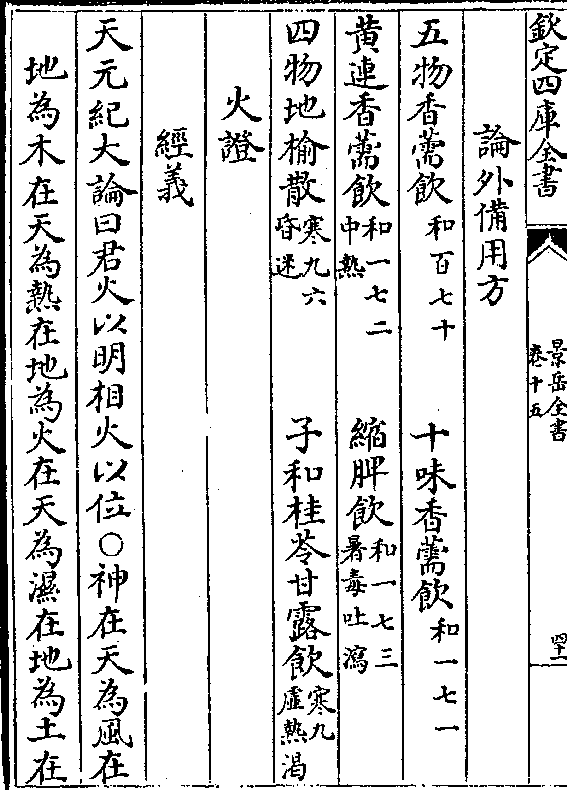 欽定四庫全書
景岳全書
卷十五
論外備用方
五物香薷飲 和百七十 十味香薷飲 和一七一
黃連香薷飲 和一七二 中熱 縮脾飲 和一七三 暑毒吐瀉
四物地榆散 寒九六 昏迷 子和桂苓甘露飲 寒九 虛熱渴
火證
經義
天元紀大論曰君火以明相火以位○神在天為風在
地為木在天為熱在地為火在天為濕在地為土在